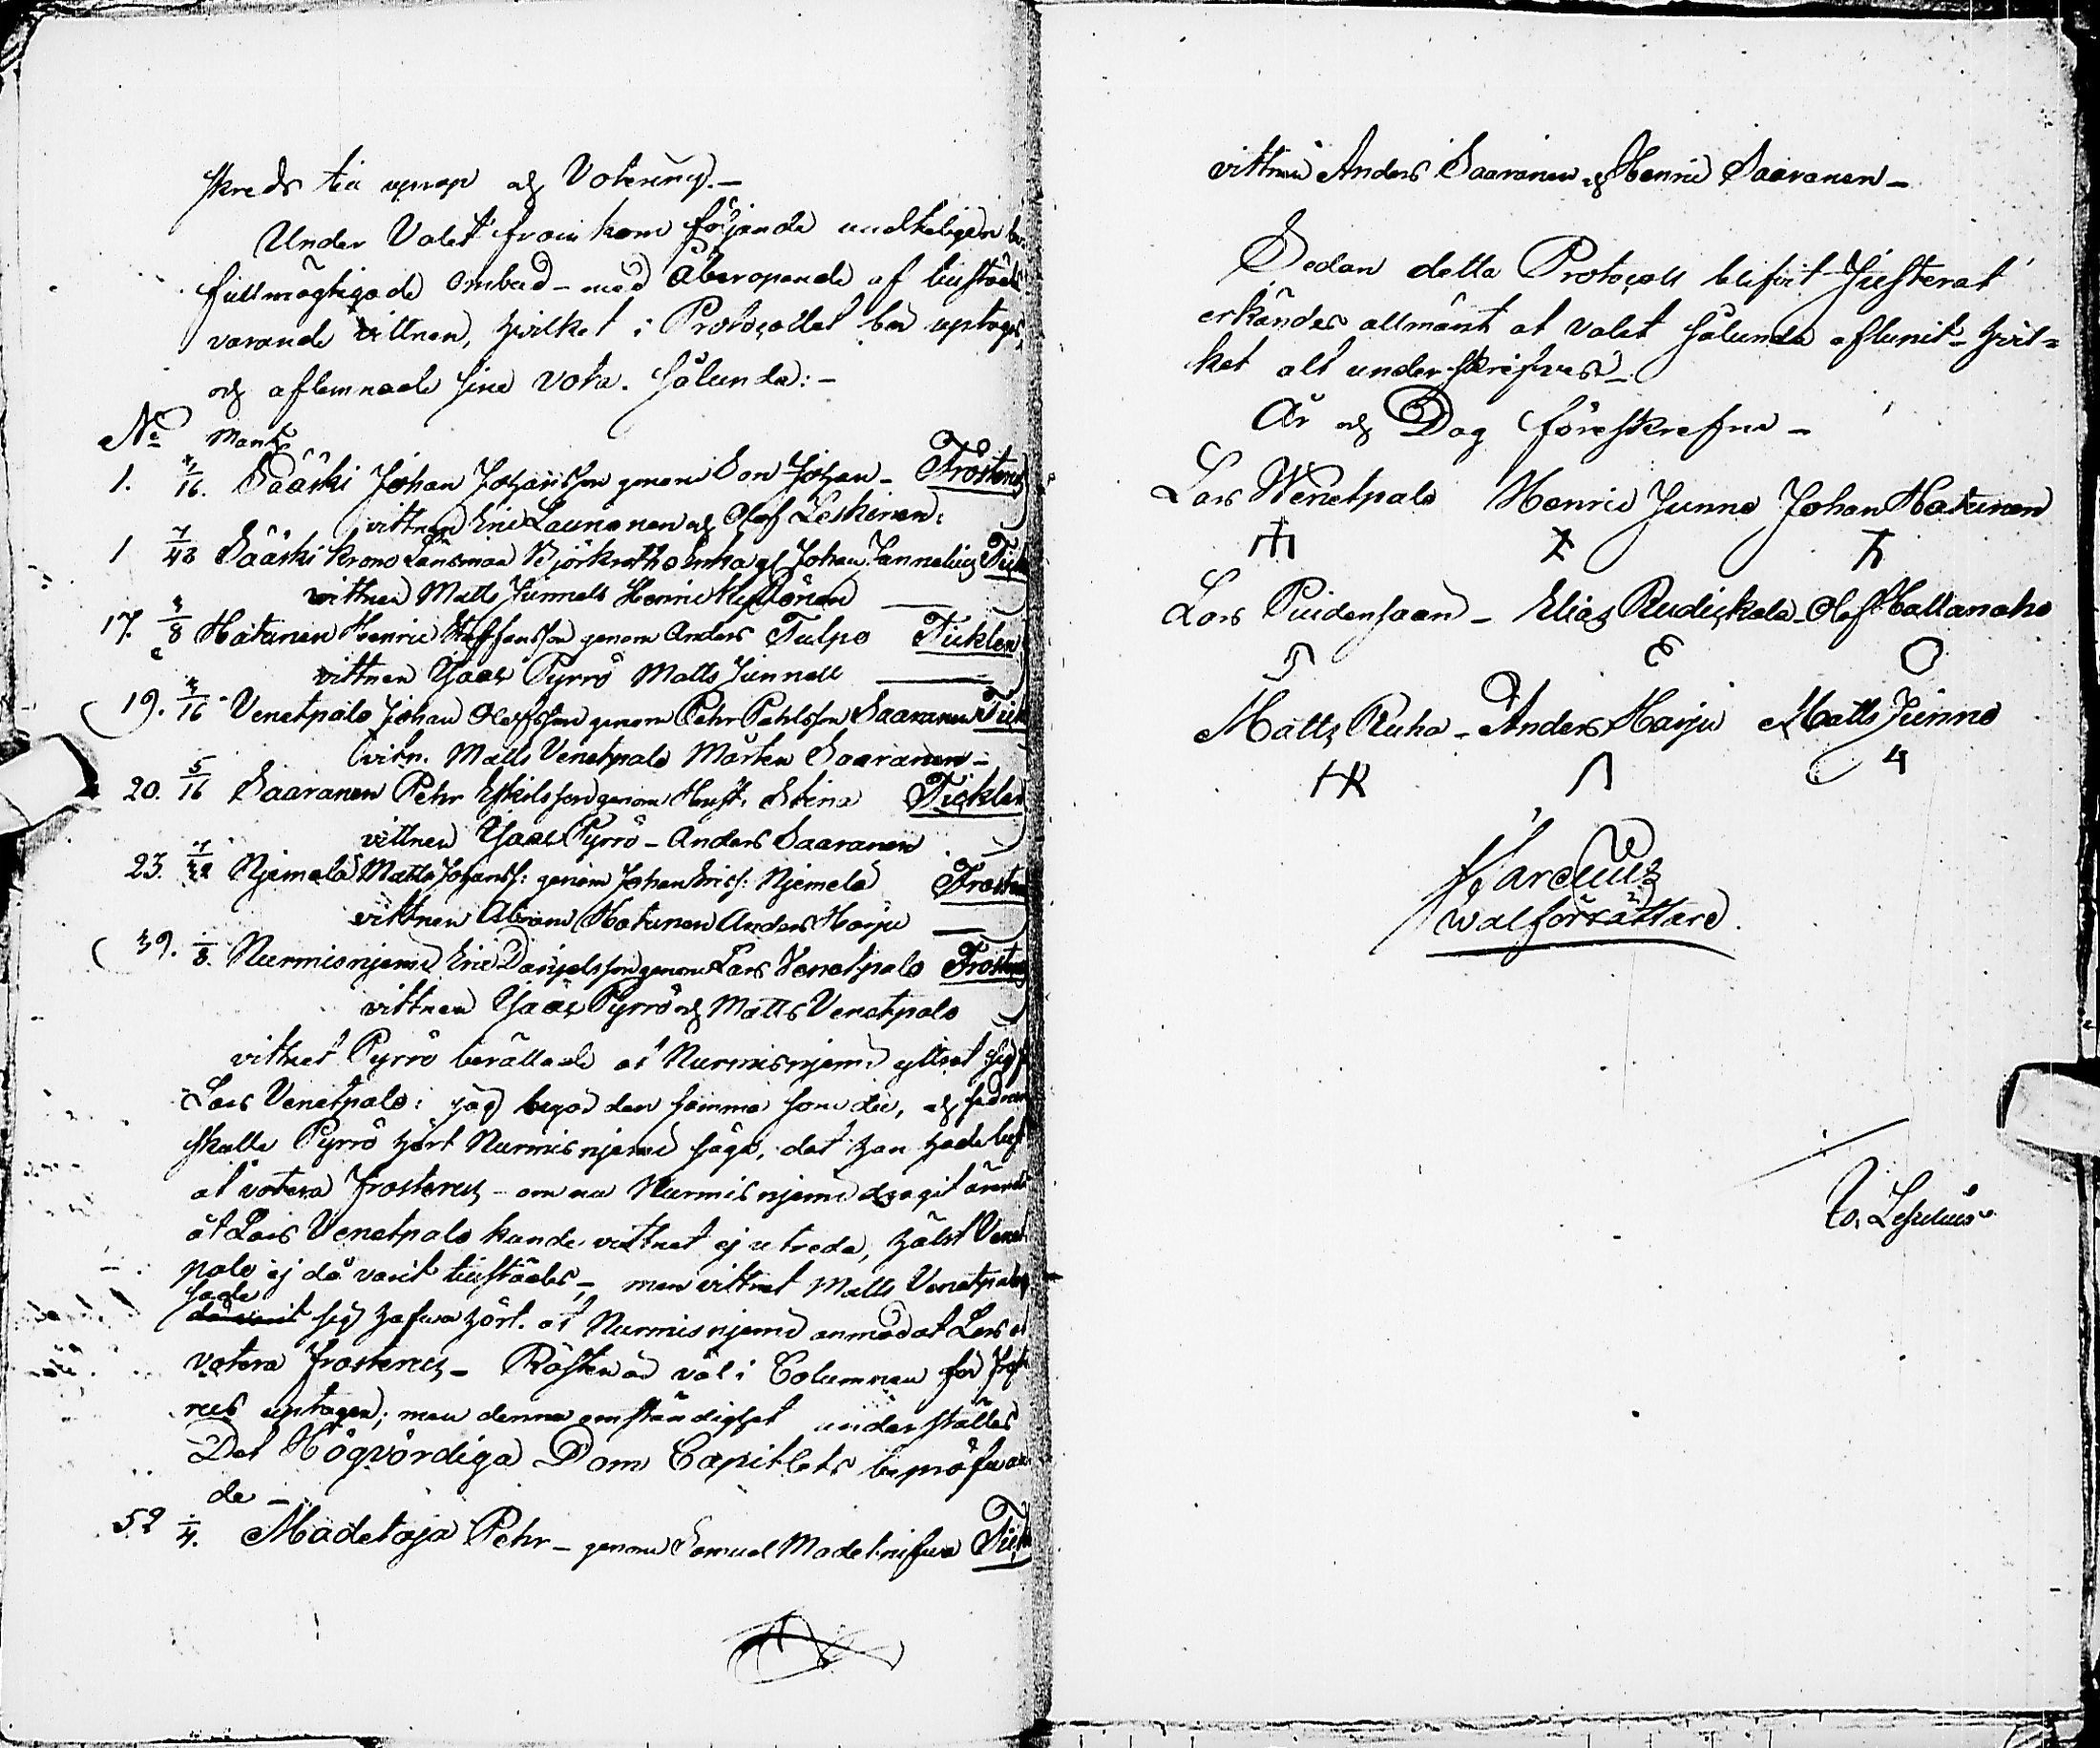 skreds till uprop och Votering.-
Under Valet fram kom följande
fullmägtigade Ombud - med Åberopande af tillstädes
varande vittnen, hvilket i Protocollet bör uptagas,
och aflemnade sina Vota. Sålunda:-
No Mant.
1. 16. Sääski Johan Johansson genom Son Johan - Frosterus
vittnen Eric Launonen och Olof Leskinen:
1 7/48 Sääski Krono Länsman Johan Tick
vittnen Matts Junnels Henric
17. 8 Hatunen Henric Staffansson genom Anders Tulpo Ticklen
vittnen Isaac Pyrrö Matts Junnell
19. 16 Venetpalo Johan Olofsson genom Pehr Pahlsson Saaranen Tick
vittn. Matts Venetpalo Mårten Saaranen -
20. 5/16 Saaranen Pehr Eskilsson genom Hust. Stina Ticklen
vittnen Isaac Pyrrö - Anders Saaranen
23. Njemelä Matts Johanss: genom Johan Ericss: Njemelä Froster
vittnen Abram Hatunen Anders Harju
39. 8. Nurmisnjemi Eric Danjelsson genom Lars Venetpalo Frosterus
vittnen Isaac Pyrrö och Matts Venetpalo
vittnet Pyrrö berättade at Nurmisnjemi yttrat sig
Lars Venetpalo: jag begär den samma som du, och sedan
skulle Pyrrö hört Nurmisnjemi säga, det han hade lust
at votera Frosterus - om nu Nurmisnjemi dragit ärende
åt Lars Venetpalo kunde vittnet ej utreda, hälst Venet
palo ej då varit tillstädes, - men vittnet Matts Venetpalo
sade
då varit sig hafva hört at Nurmisnjemi anmodat Lars at
votera Frosterus - Rösten är väl i Columnen för Froste
rus uptagen; men denna omständighet underställes
Det Högvördiga Dom Capitlets bepröfvan
de -
52 4. Madetoja Pehr - genom Samuel Tick
vittnen Anders Saaranen och Henric Saaranen -
Sedan detta Protocoll blifvit Justerat
erkändes allmänt at valet sålunda aflupit - hvil=
ket alt underskrifves -
År och Dag föreskrefne -
Lars Wenetpalo Henric Junno Johan Hatunen
Lars - Elias Rudiskala - Olof Hallanaho
Matts Ruha - Anders Harju Matts Junno
Walförrättare.